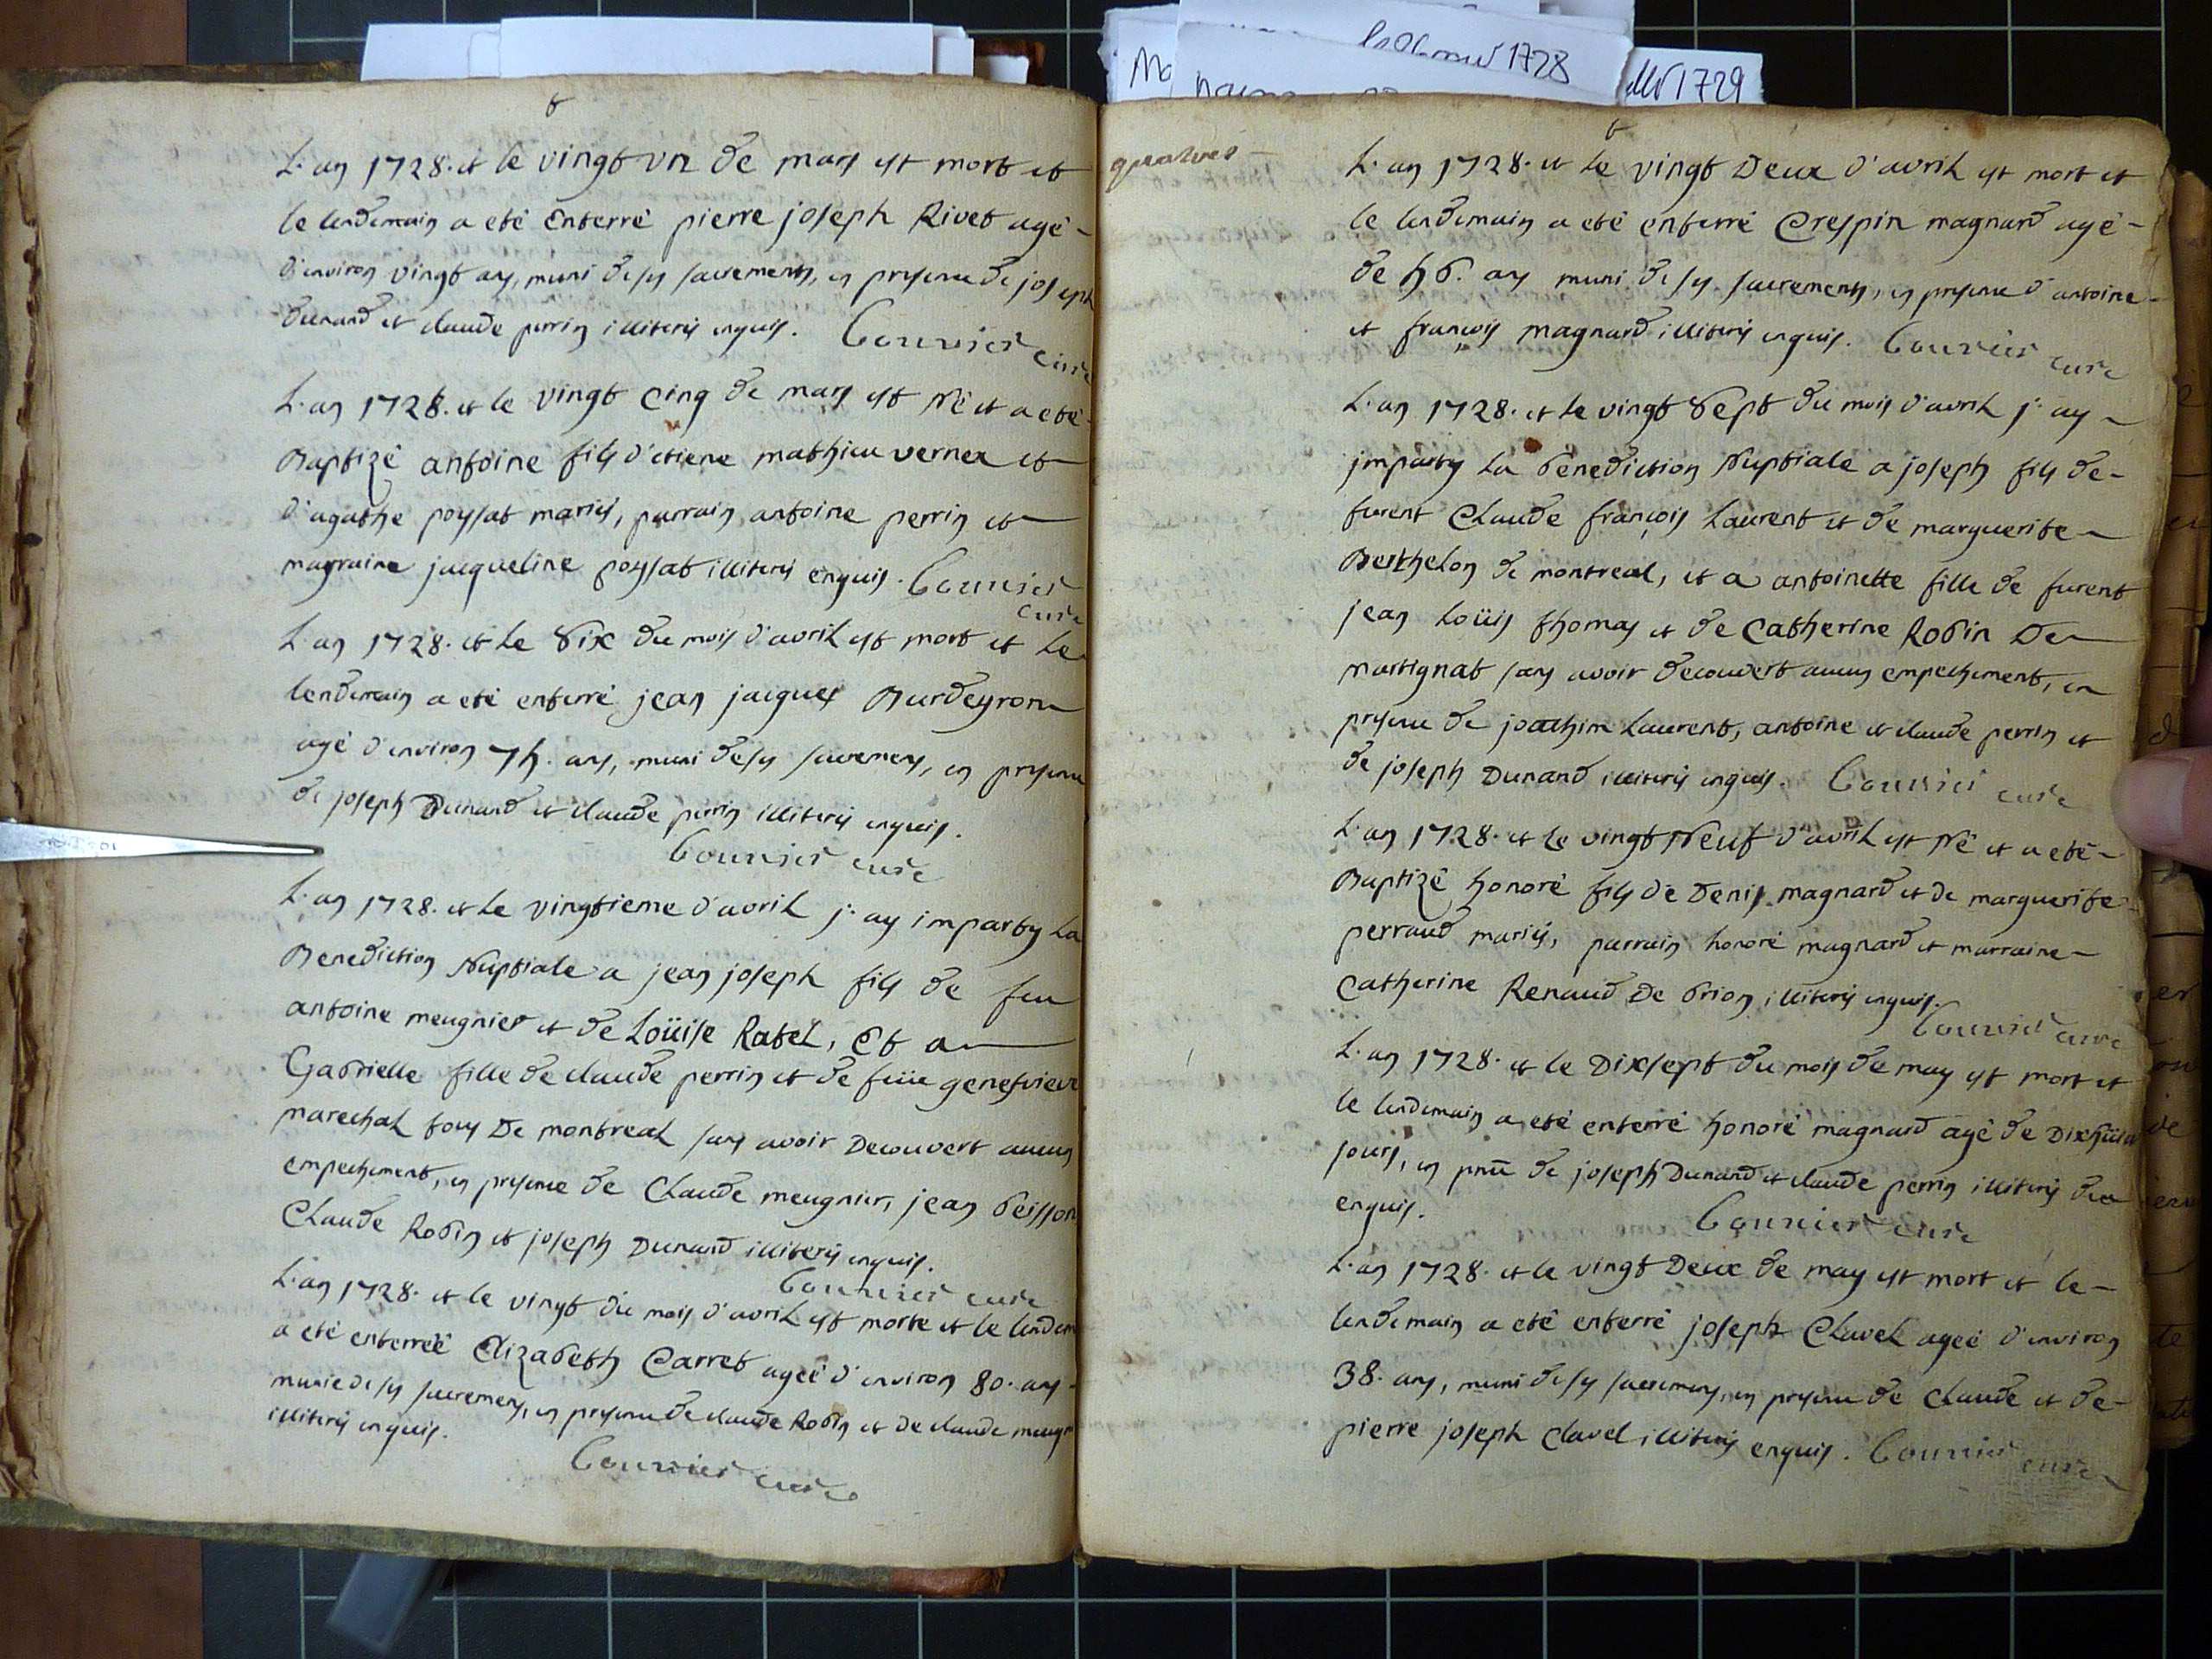 L'an 1728. et le vingt un de mars est mort et
le lendemain a eté Enterré pierre joseph Rivet agé
d'environ vingt ans, muni de ses sacrements, en presence de joseph
Dunand et claude perrin illiterés enquis. Cournier curé
L'an 1728. et le vingt cinq de mars est Né et a eté
Baptizé antoine fils d'etiene mathieu vernex et
d'agathe poyssat mariés, parrain antoine perrin et
marraine jacqueline poyssat illiterés enquis. Cournier
curé
L'an 1728. et le Six du mois d'avril est mort et le
lendemain a eté enterré jean jacques Burdeyron
agé d'environ 75. ans, muni de ses sacremens, en presence
de joseph Dunand et claude perrin illiterés enquis.
Cournier curé
L'an 1728. et le vingtieme d'avril j'ay imparty La
Benediction Nuptiale a jean joseph fils de feu
antoine meugnier et de Loüise Ratel, Et a
Gabrielle fille de claude perrin et de feüe genefvieve
marechal tous De montreal sans avoir Decouvert aucun
empechement, en presence de Claude meugnier, jean
Claude Robin et joseph Dunand illiterés enquis.
Cournier curé
L'an 1728. et le vingt du mois d'avril est morte et le lendem
a eté enterreé Elizabeth Carret ageé d'environ 80. ans
munie de ses sacremens, en presence de claude Robin et de claude meugn
illiterés enquis.
Cournier curé
1728
1729
quatres
L'an 1728. et le vingt Deux d'avril est mort et
le lendemain a eté enterré Crespin magnard agé
de 56. ans muni de ses sacrements, en presence d'antoine
et françois magnard illiterés enquis. Cournier curé
L'an 1728. et le vingt Sept du mois d'avril j'ay
imparty La benediction Nuptiale a joseph fils de
furent Claude françois Laurent et de marguerite
Berthelon de montreal, et a antoinette fille de furent
jean Loüis thomas et de Catherine Robin De
martignat sans avoir decouvert aucun empechement, en
presence de joachim Laurent, antoine et claude perrin et
de joseph Dunand illiterés enquis. Cournier curé
L'an 1728. et le vingt Neuf d'avril est Né et a eté
Baptizé honoré fils de Denis magnard et de marguerite
perraud mariés, parrain honoré magnard et marraine
Catherine Renaud De brion illiterés enquis.
Cournier curé
L'an 1728. et le Dixsept du mois de may est mort et
le lendemain a eté enterré honoré magnard agé de Dixhüit
jours, en pnce de joseph Dunand et claude perrin illiterés
enquis. Cournier curé
L'an 1728. et le vingt Deux de may est mort et le
lendemain a eté enterré joseph Clavel ageé d'environ
38. ans, muni de ses sacremens, en presence de Claude et de
pierre joseph Clavel illiterés enquis. Cournier curé